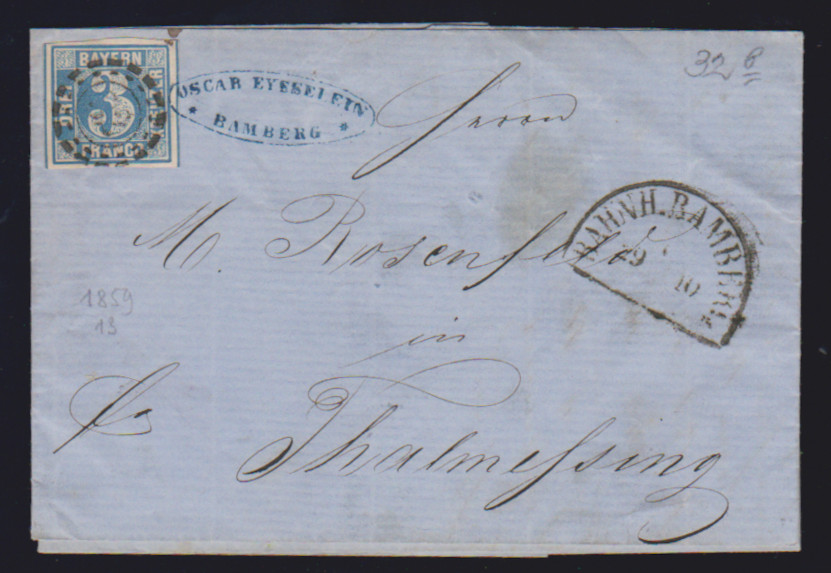 BAYERN
3
FRANCO
OSCAR EYSSELEIN
* BAMBERG *
32
Herrn
M. Rosenfeld
BAHNH. BAMBERG
29 10
1859
13
in
fr
Thalmessing